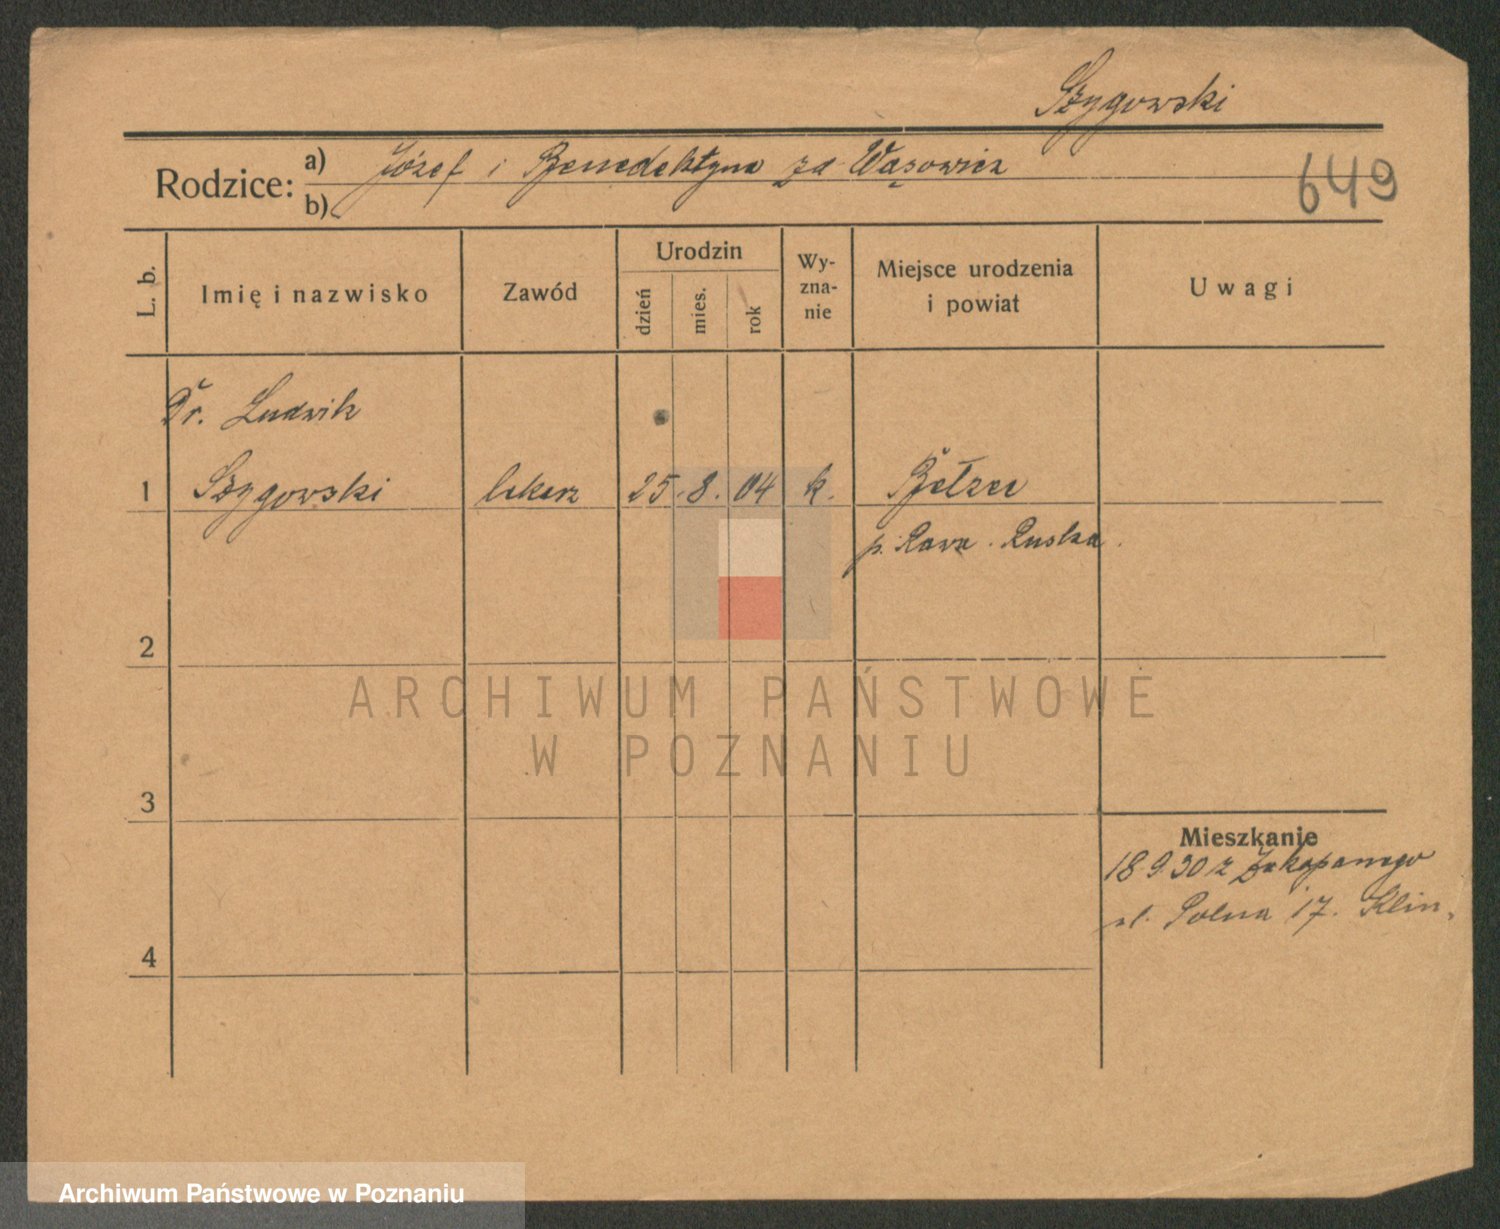 Szygowski
Rodzice: a) Józef i Benedektyna za Wąsowicz
b)
649
L. b.
Imię i nazwisko
Zawód
Urodzin
dzień
mies.
rok
Wy-
zna-
nie
Miejsce urodzenia
i powiat
Uwagi
Dr. Ludwik
1 Szygowski lekarz 25. 8. 04 k. Bełzec
p. Rawa Ruska.
2
ARCHIWUM PAŃSTWOWE
W POZNANIU
3
Mieszkanie
18 9 30 z Zakopanego
ul. Polna 17. Klin.
4
Archiwum Państwowe w Poznaniu